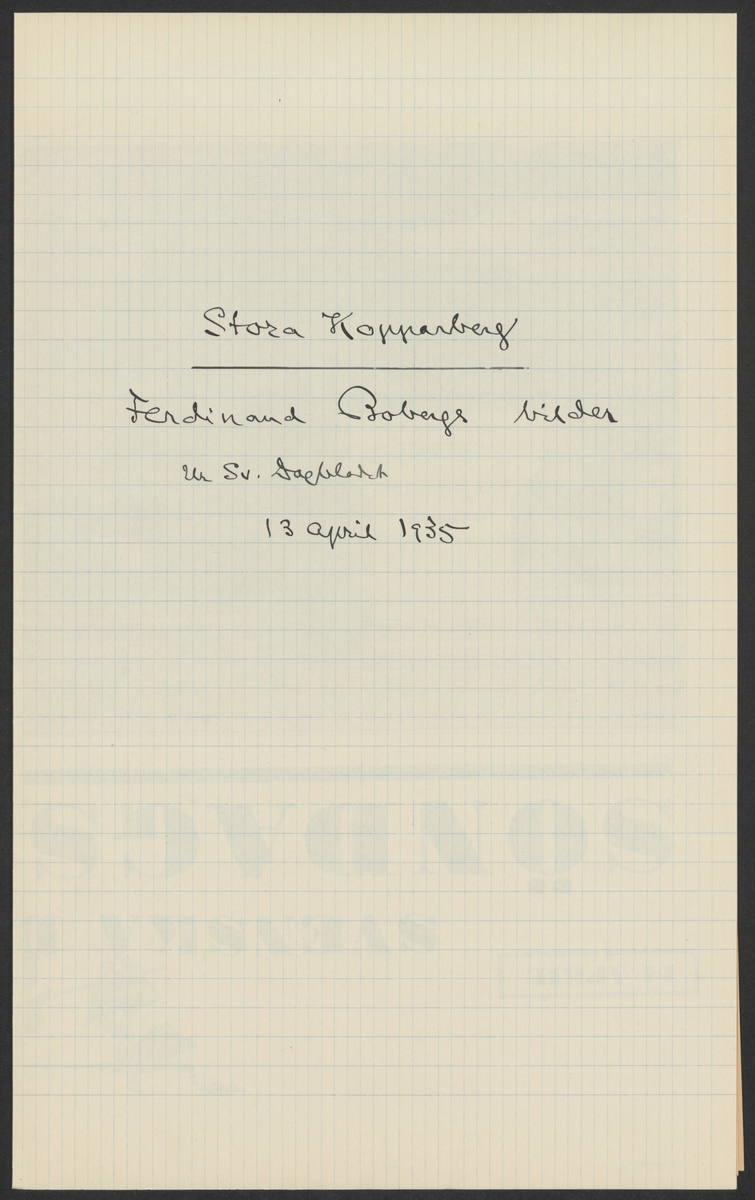 Stora Kopparberg
Ferdinand Bobergs bilder
Ur Sv. Dagbladet
13 april 1935
SÖNDAGS
SVENSKA